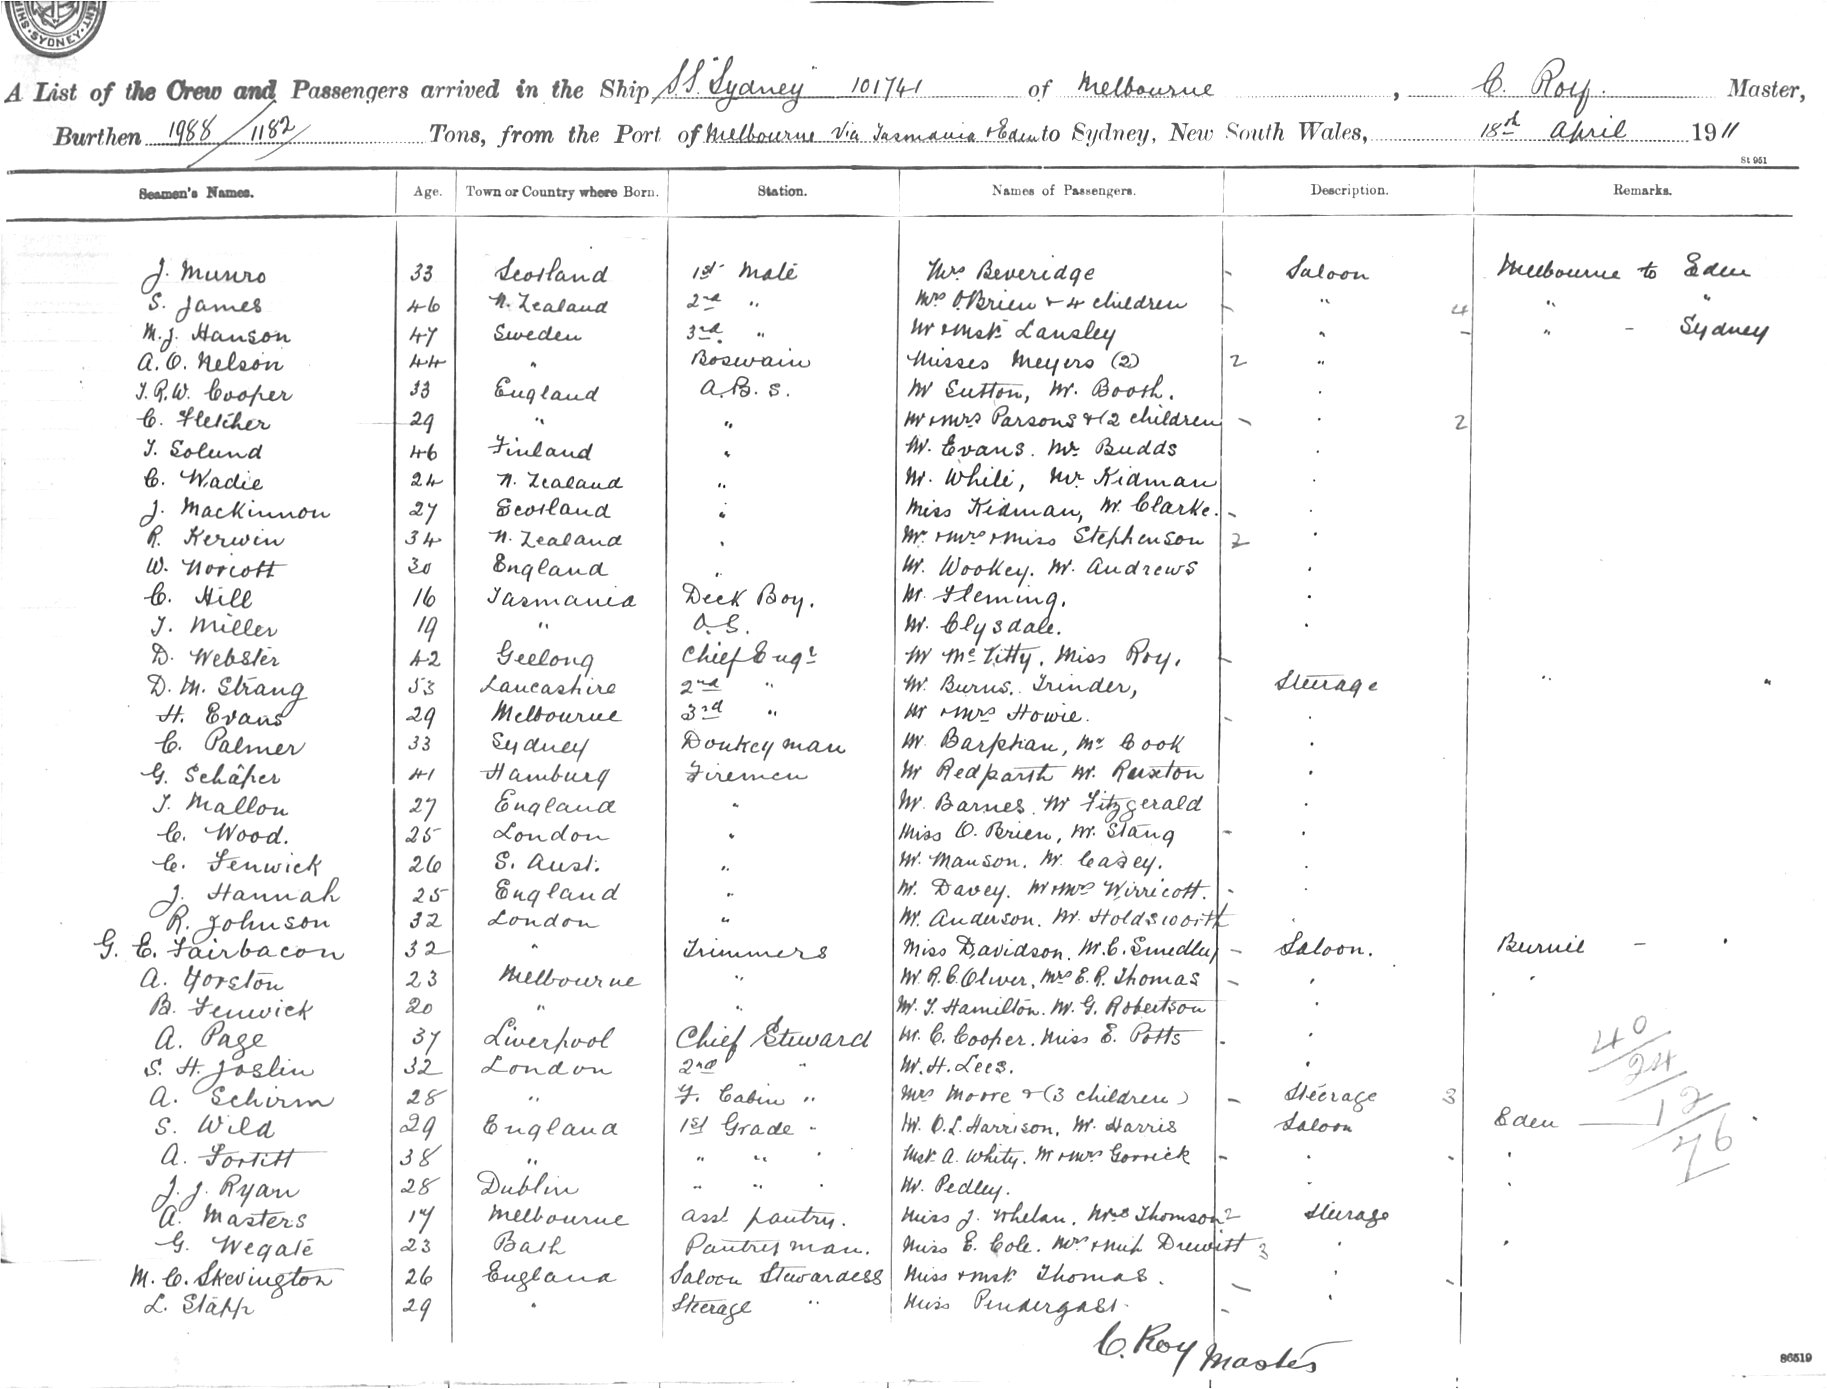 SYDNEY
A List of the Crew and Passengers arrived in the Ship S.S. "Sydney" 101741 of Melbourne, C. Roy. Master,
Burthen 1988/1182 Tons, from the Port of Melbourne Via Tasmania & Eden to Sydney, New South Wales, 18th April 1911
St 951
Seamen's Names. Age. Town or Country where Born. Station. Names of Passengers. Description. Remarks.
J. Munro 33 Scotland 1st Mate Mrs Beveridge - Saloon Melbourne to Eden
S. James 46 N. Zealand 2nd " Mrs O'Brien & 4 children - " 4 " "
M. J. Hanson 47 Sweden 3rd " Mr & Mst. Lansley " - " - Sydney
A. O. Nelson 44 " Boswain Misses Meyers (2) 2 "
T. R. W. Cooper 33 England A.B.s. Mr Sutton, Mr. Booth. "
C. Fletcher 29 " " Mr & Mrs Parsons & (2 children - " 2
T. Solund 46 Finland " Mr. Evans. Mr Budds "
C. Wadie 24 N. Zealand " Mr. White, Mr Kidman "
J. Mackinnon 27 Scotland " Miss Kidman, Mr. Clarke. - "
R. Kerwin 34 N. Zealand " Mr & Mrs & Miss Stephenson 2 "
W. Norcott 30 England " Mr. Wookey. Mr. Andrews "
C. Hill 16 Tasmania Deck Boy. Mr. Fleming. "
T. Miller 19 " O.S. Mr. Clysdale. "
D. Webster 42 Geelong Chief Engr Mr McVitty. Miss Roy. -
D. M. Strang 53 Lancashire 2nd " Mr. Burns. Trinder, Steerage " "
H. Evans 29 Melbourne 3rd " Mr & Mrs Howie. - "
C. Palmer 33 Sydney Donkeyman Mr. Barphan, Mr Cook "
G. Schäper 41 Hamburg Firemen Mr Redparth Mr. Ruxton "
T. Mallon 27 England " Mr. Barnes. Mr Fitzgerald "
C. Wood. 25 London " Miss O. Brien, Mr. Stang - "
C. Fenwick 26 S. Aust. " Mr. Manson. Mr. Casey. "
J. Hannah 25 England " Mr. Davey. Mr & Mrs Wirricott. - "
R. Johnson 32 London " Mr. Anderson. Mr. Holdsworth "
G. E. Fairbacon 32 " Trimmers Miss Davidson. Mr. C. Smedley - Saloon. Burnie - "
A. Yorston 23 Melbourne " Mr. R. C. Oliver, Mrs E. R. Thomas - " "
B. Fenwick 20 " " Mr. T. Hamilton. Mr. G. Robertson " "
A. Page 37 Liverpool Chief Steward Mr. C. Cooper. Miss E. Potts - " 40
S. H. Joslin 32 London 2nd " Mr. H. Lees. " 24
A. Schirm 28 " F. Cabin " Mrs Moore & (3 children) - Steerage 3 12
S. Wild 29 England 1st Grade " Mr. O. L. Harrison, Mr. Harris Saloon Eden - "
76
A. Fortitt 38 " " " " Mst. A. Whity. Mr & Mrs Gorrick - " - "
J. J. Ryan 28 Dublin " " " Mr. Pedley. " "
A. Masters 17 Melbourne Asst. pantry. Miss J. Whelan. Mrs Thomson 2 Steerage "
G. Wegate 23 Bath Pantryman. Miss E. Cole. Mrs & Miss Drewitt 3 " "
M. C. Skevington 26 England Saloon Stewardess Miss & Mst. Thomas. - " -
L. Stapp 29 " Steerage " Miss Pendergast. - "
C. Roy Master
86519